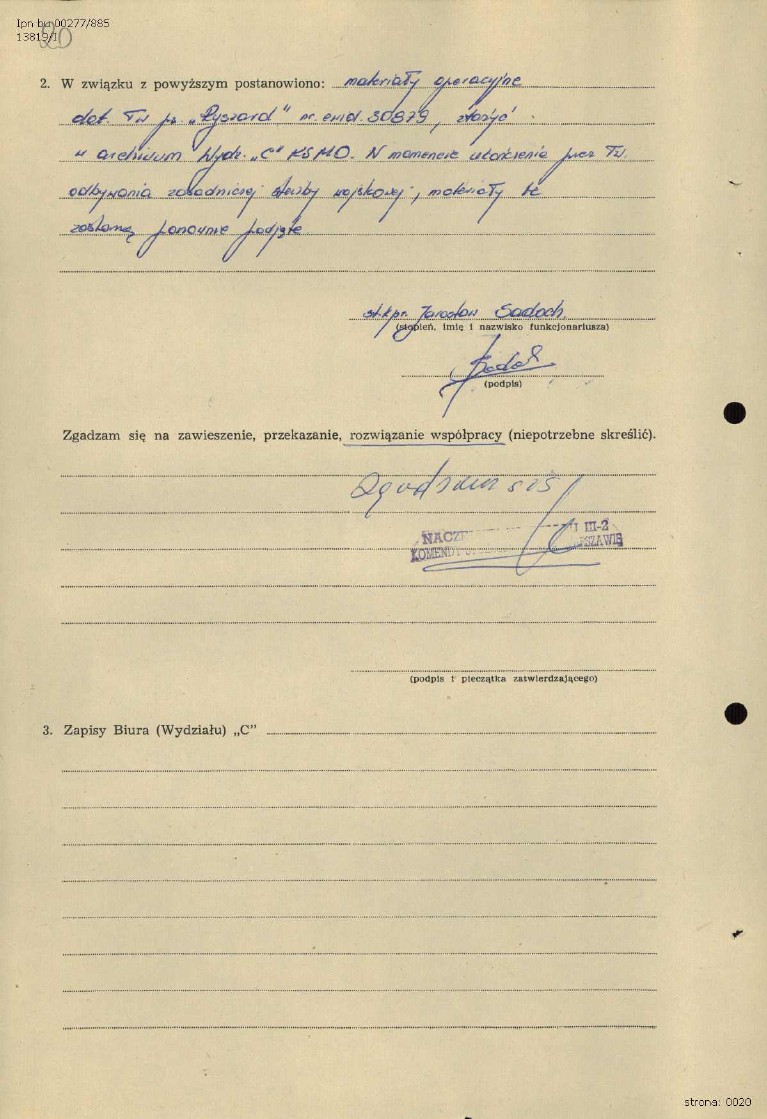 Ipn bu 00277/885
13819/1
20
2. W związku z powyższym postanowiono: materiały operacyjne
dot. TW ps. „Ryszard” nr. ewid. 30879, złożyć
w archiwum Wydz. „C” KSMO. W momencie ukończenia przez TW.
odbywania zasadniczej służby wojskowej, materiały te
zostaną ponownie podjęte
st. kpr. Jarosław Sadoch
(stopień, imię i nazwisko funkcjonariusza)
(podpis)
Zgadzam się na zawieszenie, przekazanie, rozwiązanie współpracy (niepotrzebne skreślić).
Zgadzam się
NACZ III-2
KOMENDY
(podpis i pieczątka zatwierdzającego)
3. Zapisy Biura (Wydziału) „C”
strona: 0020